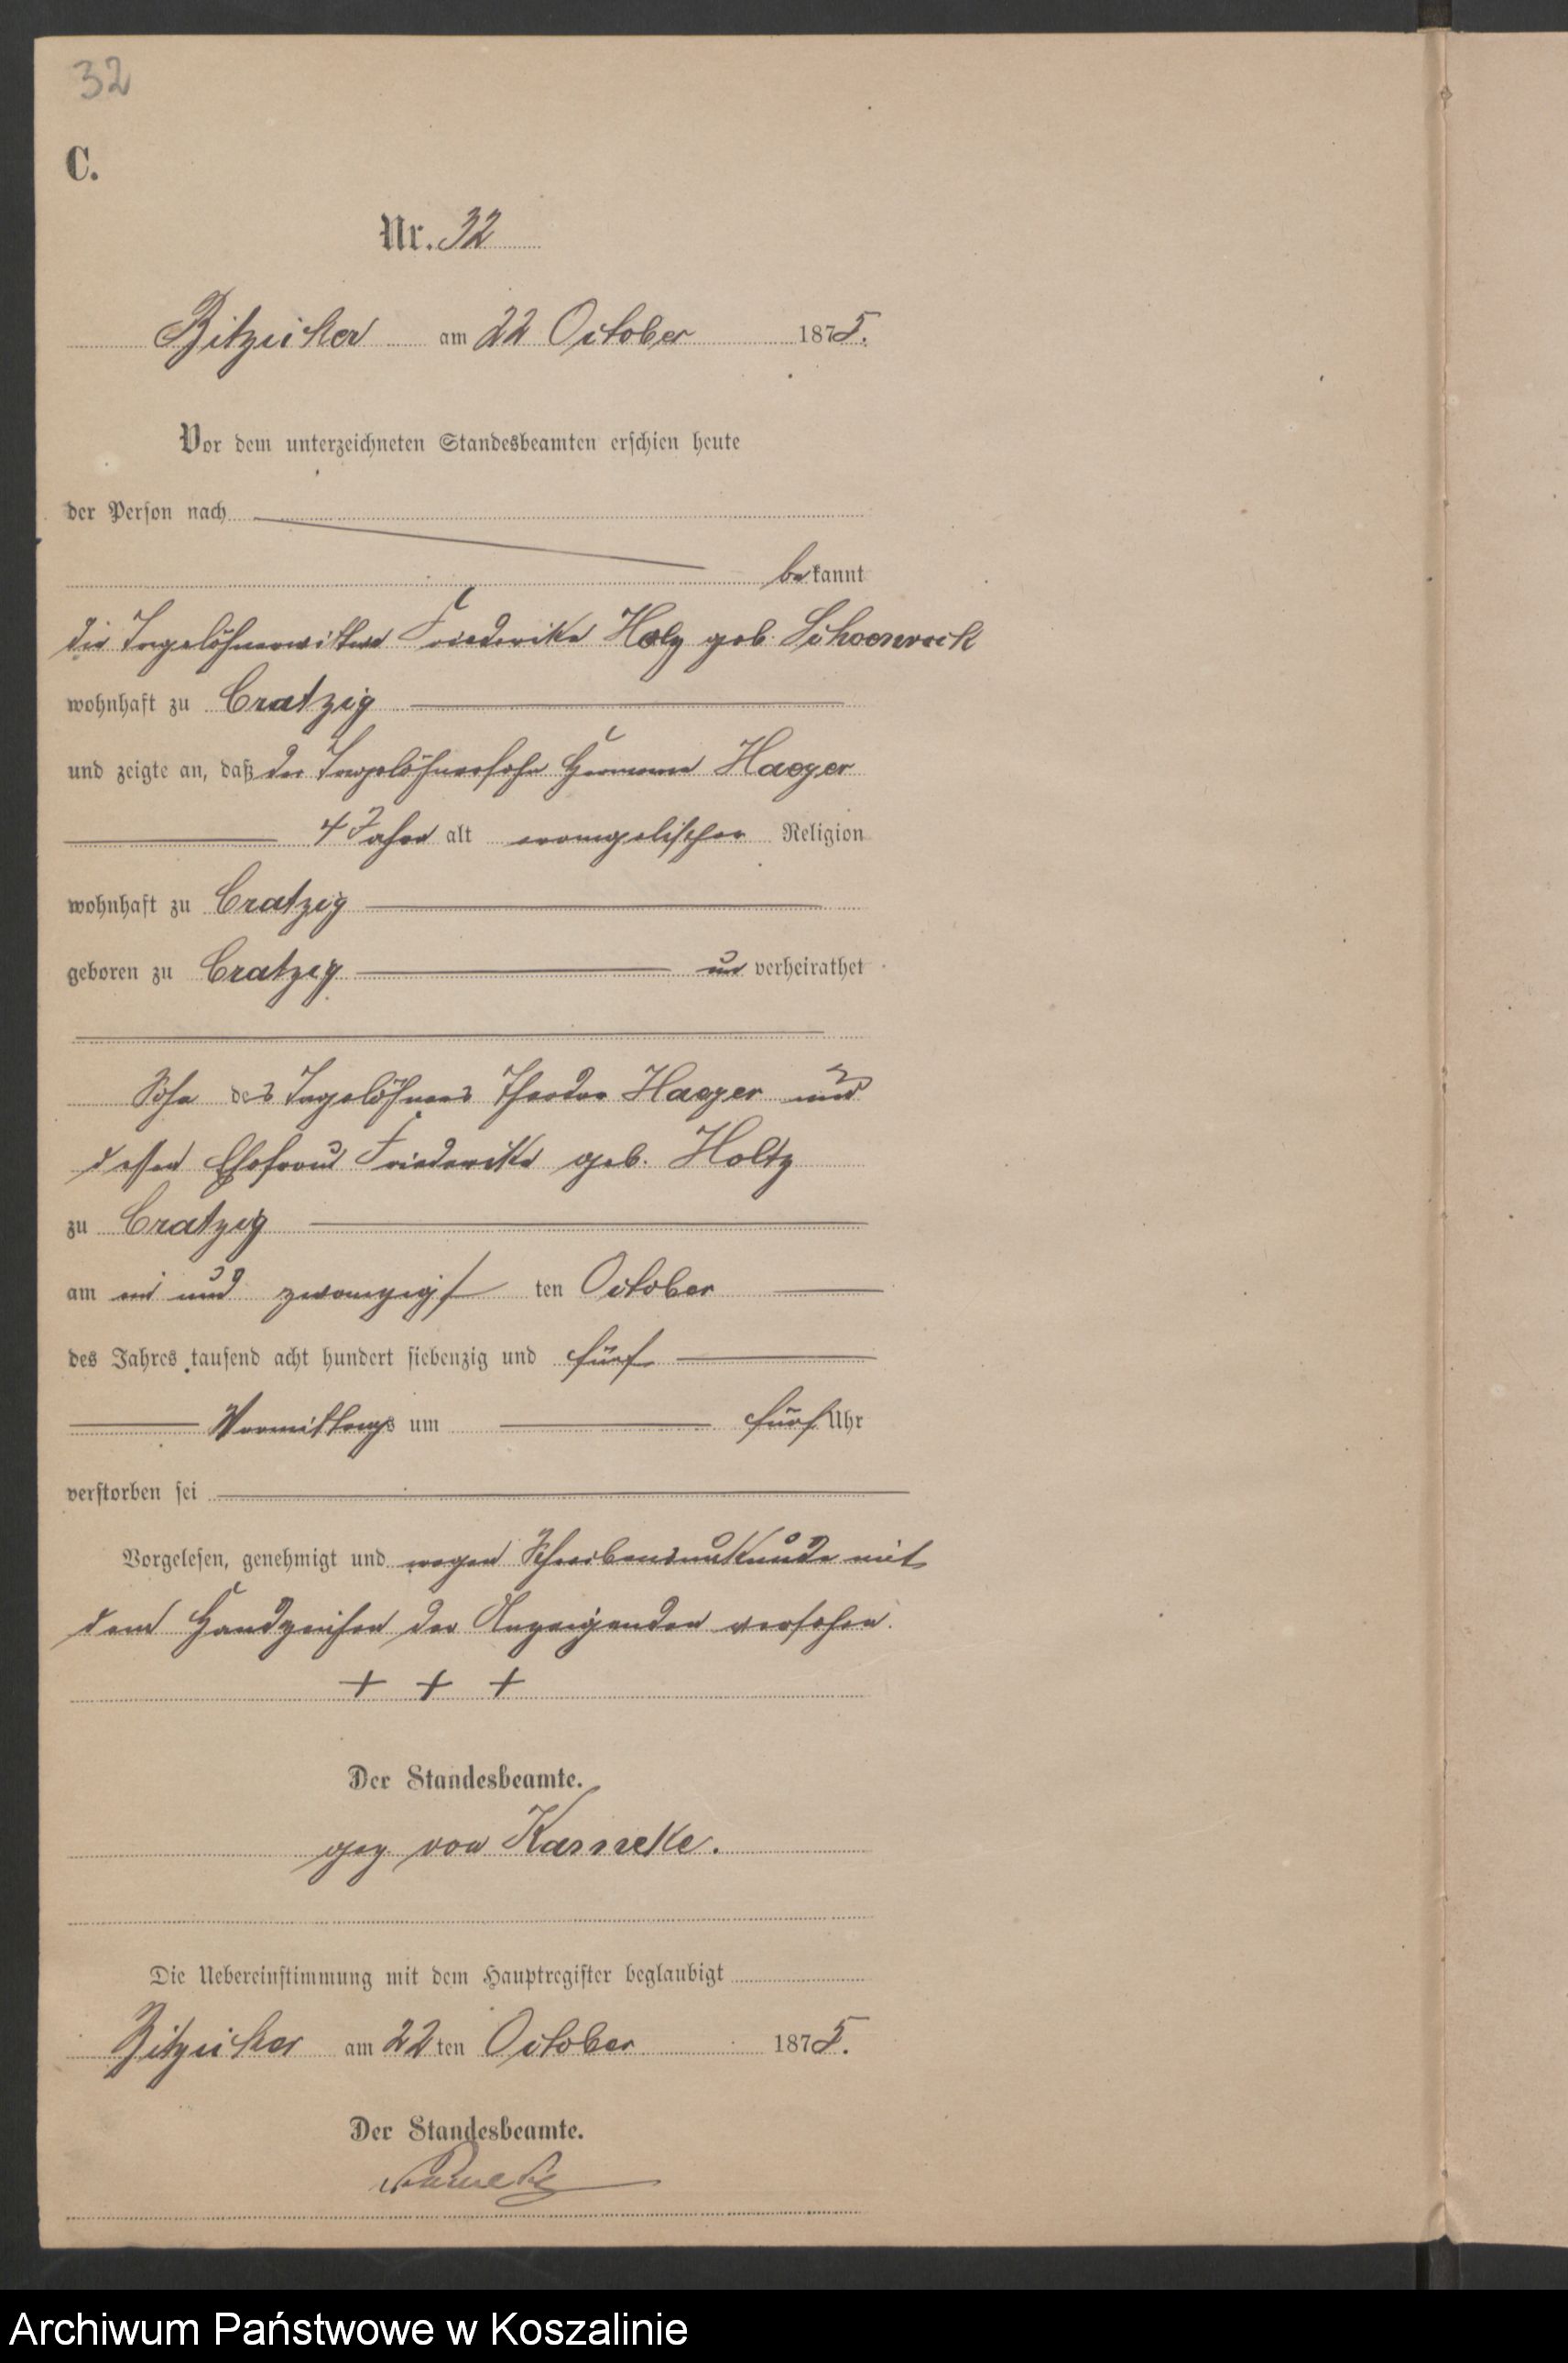 32
C.
Nr. 32
Bitziker am 22 October 1875.
Vor dem unterzeichneten Standesbeamten erschien heute
der Person nach
bekannt
die Tagelöhnerwittwe Friederike Holz geb. Schoenrock
wohnhaft zu Cratzig
und zeigte an, daß der Tagelöhnersohn Hermann Haeger
4 Jahre alt evangelischer Religion
wohnhaft zu Cratzig
geboren zu Cratzig unverheirathet
Sohn des Tagelöhners Theodor Haeger und
dessen Ehefrau Friederike geb. Holtz
zu Cratzig
am ein und zwanzigsten October
des Jahres tausend acht hundert siebenzig und fünf
Vormittags um fünf Uhr
verstorben sei
Vorgelesen, genehmigt und wegen Schreibensunkunde mit
dem Handzeichen der Anzeigenden versehen.
+ + +
Der Standesbeamte.
gez. von Kameke.
Die Uebereinstimmung mit dem Hauptregister beglaubigt
Bitziker am 22ten October 1875.
Der Standesbeamte.
Kameke
Archiwum Państwowe w Koszalinie